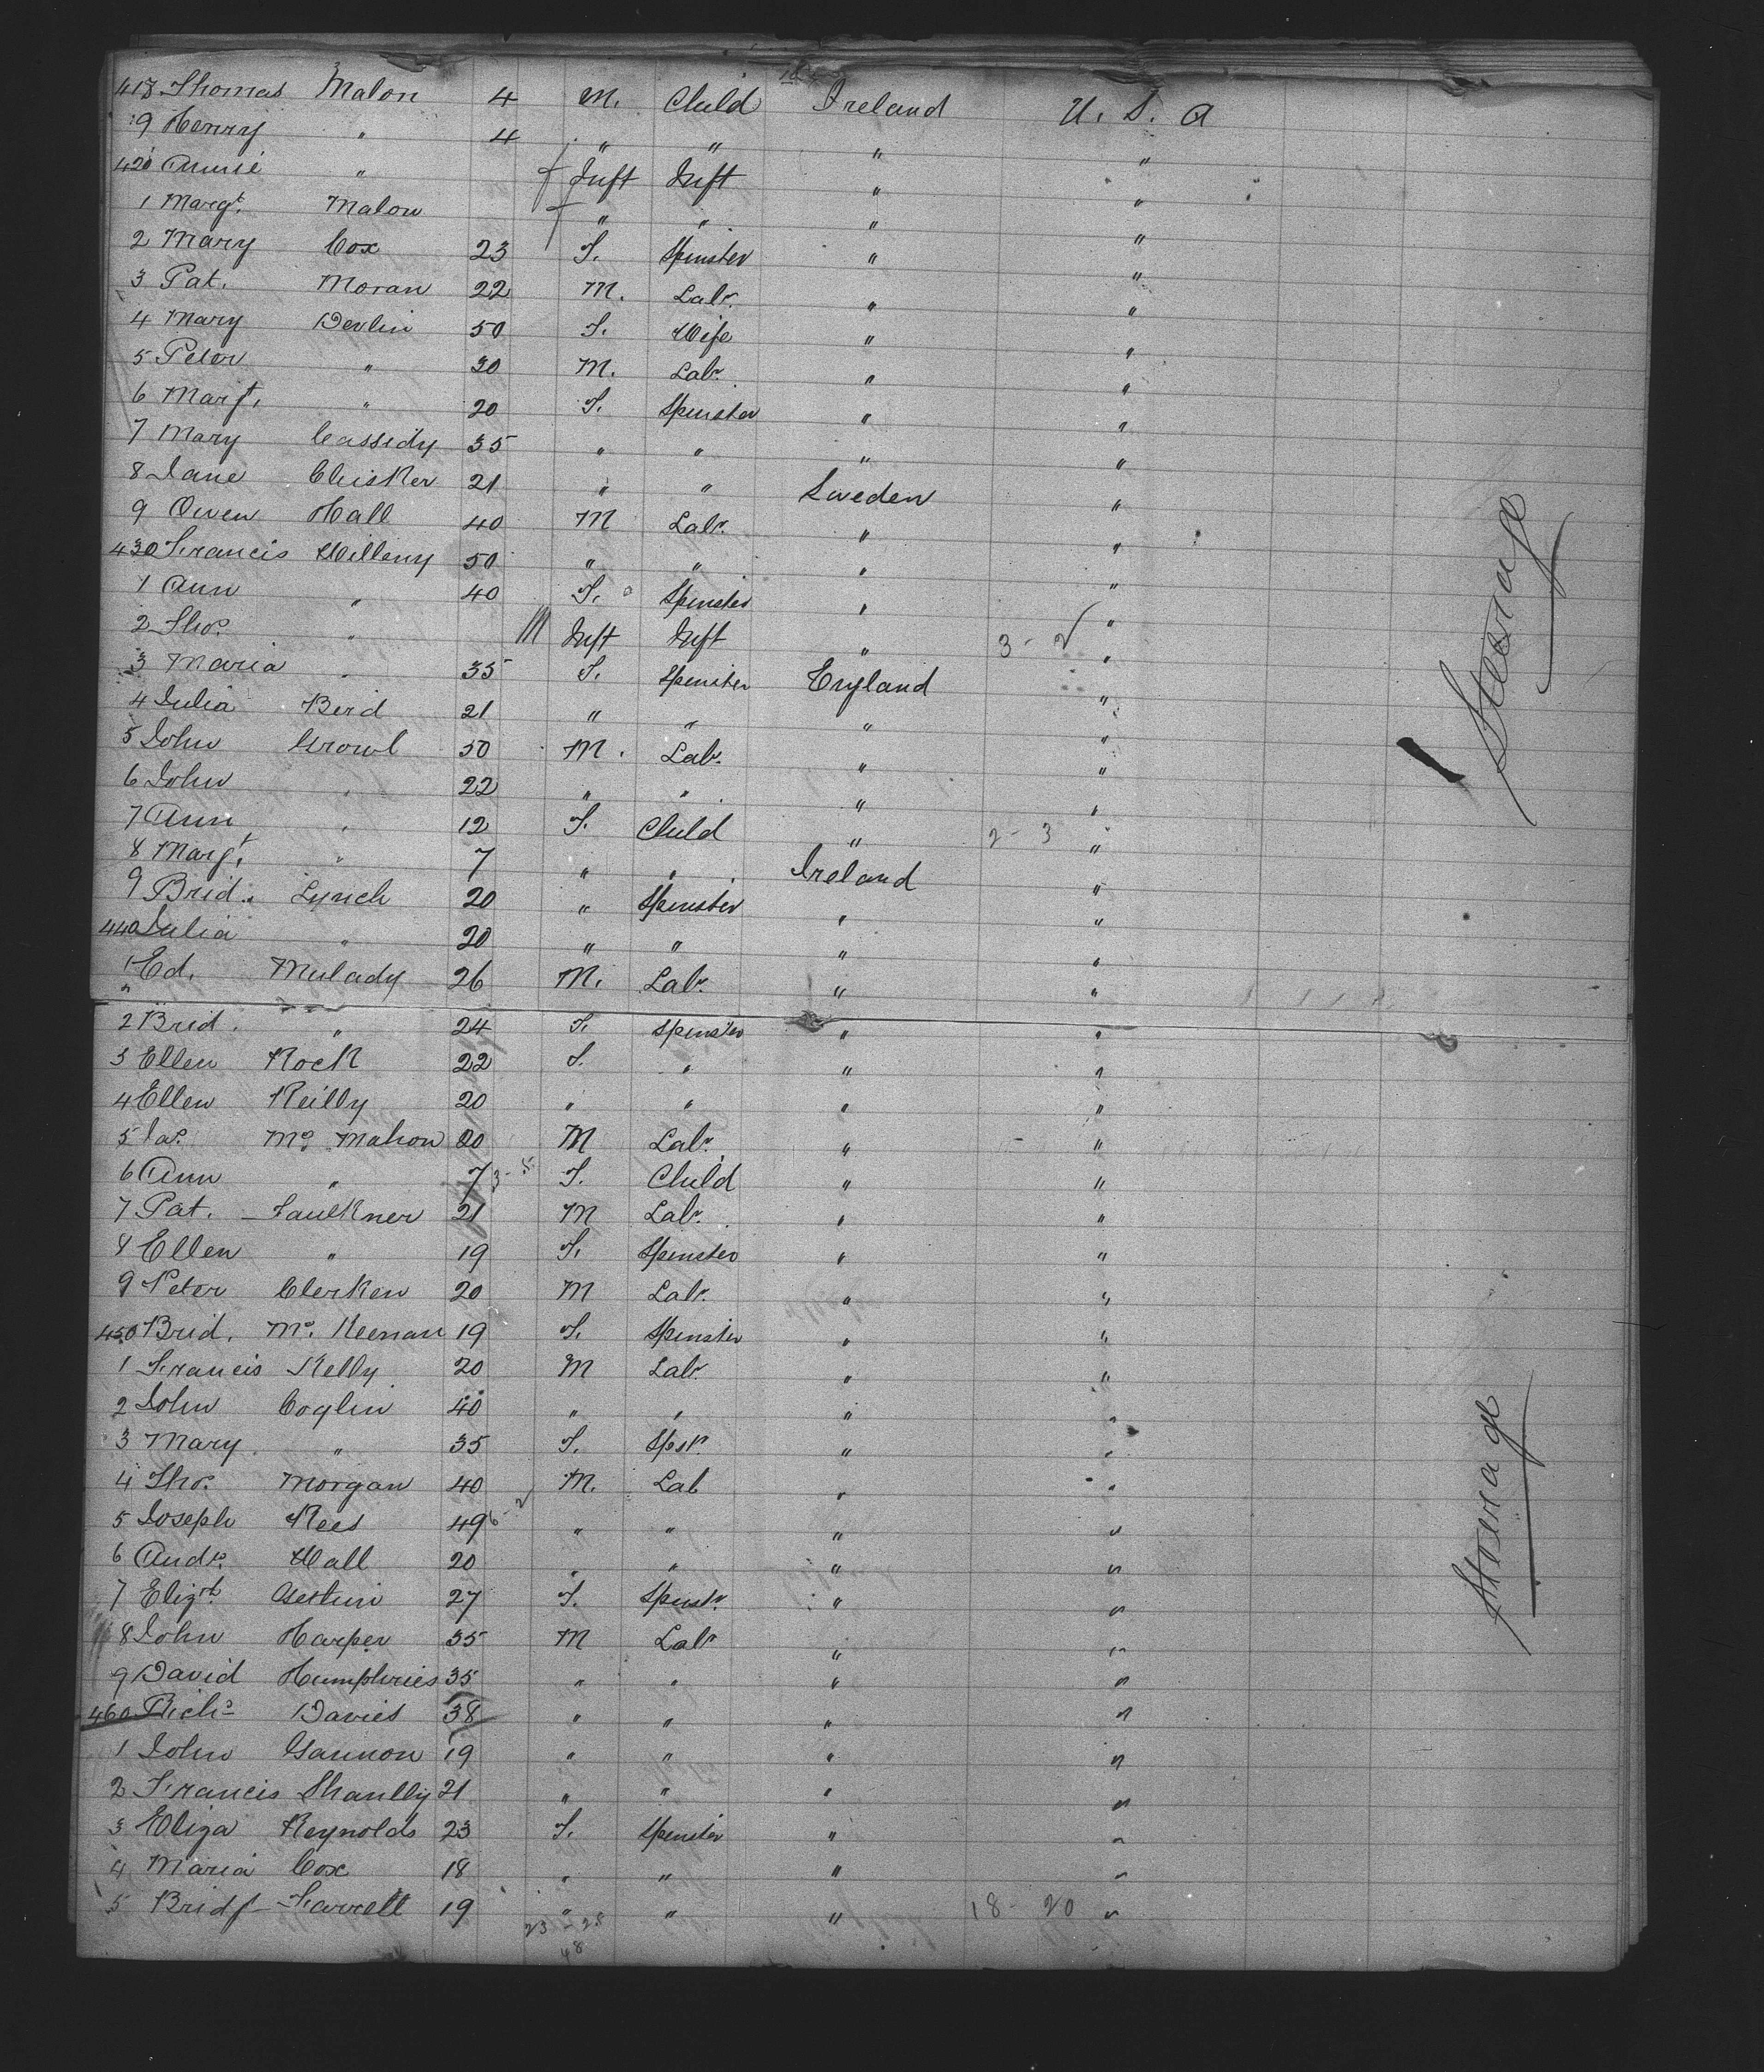 418 Thomas Malon 4 M. Child Ireland U. S. A
9 Henry " 4 " " " "
420 Annie " Inft Inft " "
1 Margt. Malon " " " "
2 Mary Cox 23 F. Spinster " "
3 Pat. Moran 22 M. Labr. " "
4 Mary Devlin 50 F. Wife " "
5 Peter " 30 M. Labr. " "
6 Margt. " 20 F. Spinster " "
7 Mary Cassidy 35 " " " "
8 Jane Clisker 21 " " Sweden "
9 Owen Hall 40 M Labr. " "
430 Francis Willeny 50 " " " "
1 Ann " 40 F. Spinster " "
2 Thos. " Inft Inft " 3 - 2 "
3 Maria " 35 F. Spinster England "
4 Julia Bird 21 " " " "
5 John Growl 50 M. Labr. " "
6 John " 22 " " " "
7 Ann " 12 F. Child " 2 - 3 "
8 Margt. " 7 " " Ireland "
9 Brid. Lynch 20 " Spinster " "
440 Julia " 20 " " " "
1 Ed. Mulady 26 M. Labr. " "
2 Brid. " 24 F. Spinster " "
3 Ellen Rock 22 F. " " "
4 Ellen Reilly 20 " " " "
5 Jas. Mc Mahon 20 M Labr. " "
6 Ann " 7 3 - 5 F. Child " "
7 Pat. Faulkner 21 M Labr. " "
8 Ellen " 19 F. Spinster " "
9 Peter Clerken 20 M Labr. " "
450 Brid. Mc. Keenan 19 F. Spinster " "
1 Francis Kelly 20 M Labr. " "
2 John Coglin 40 " " " "
3 Mary " 35 F. Spsr. " "
4 Thos. Morgan 40 M. Lab " "
5 Joseph Rees 49 6 - 2 " " " "
6 Andr. Hall 20 " " " "
7 Elizt. 27 F. Spinstr. " "
8 John Harper 35 M Labr " "
9 David Humphries 35 " " " "
460 Richd. Davies 38 " " " "
1 John Gannon 19 " " " "
2 Francis Shanlly 21 " " " "
3 Eliza Reynolds 23 F. Spinster " "
4 Maria Cox 18 " " " "
5 Bridgt Farrell 19 " " " 18 - 20 "
23 - 25
48
Steerage
Steerage